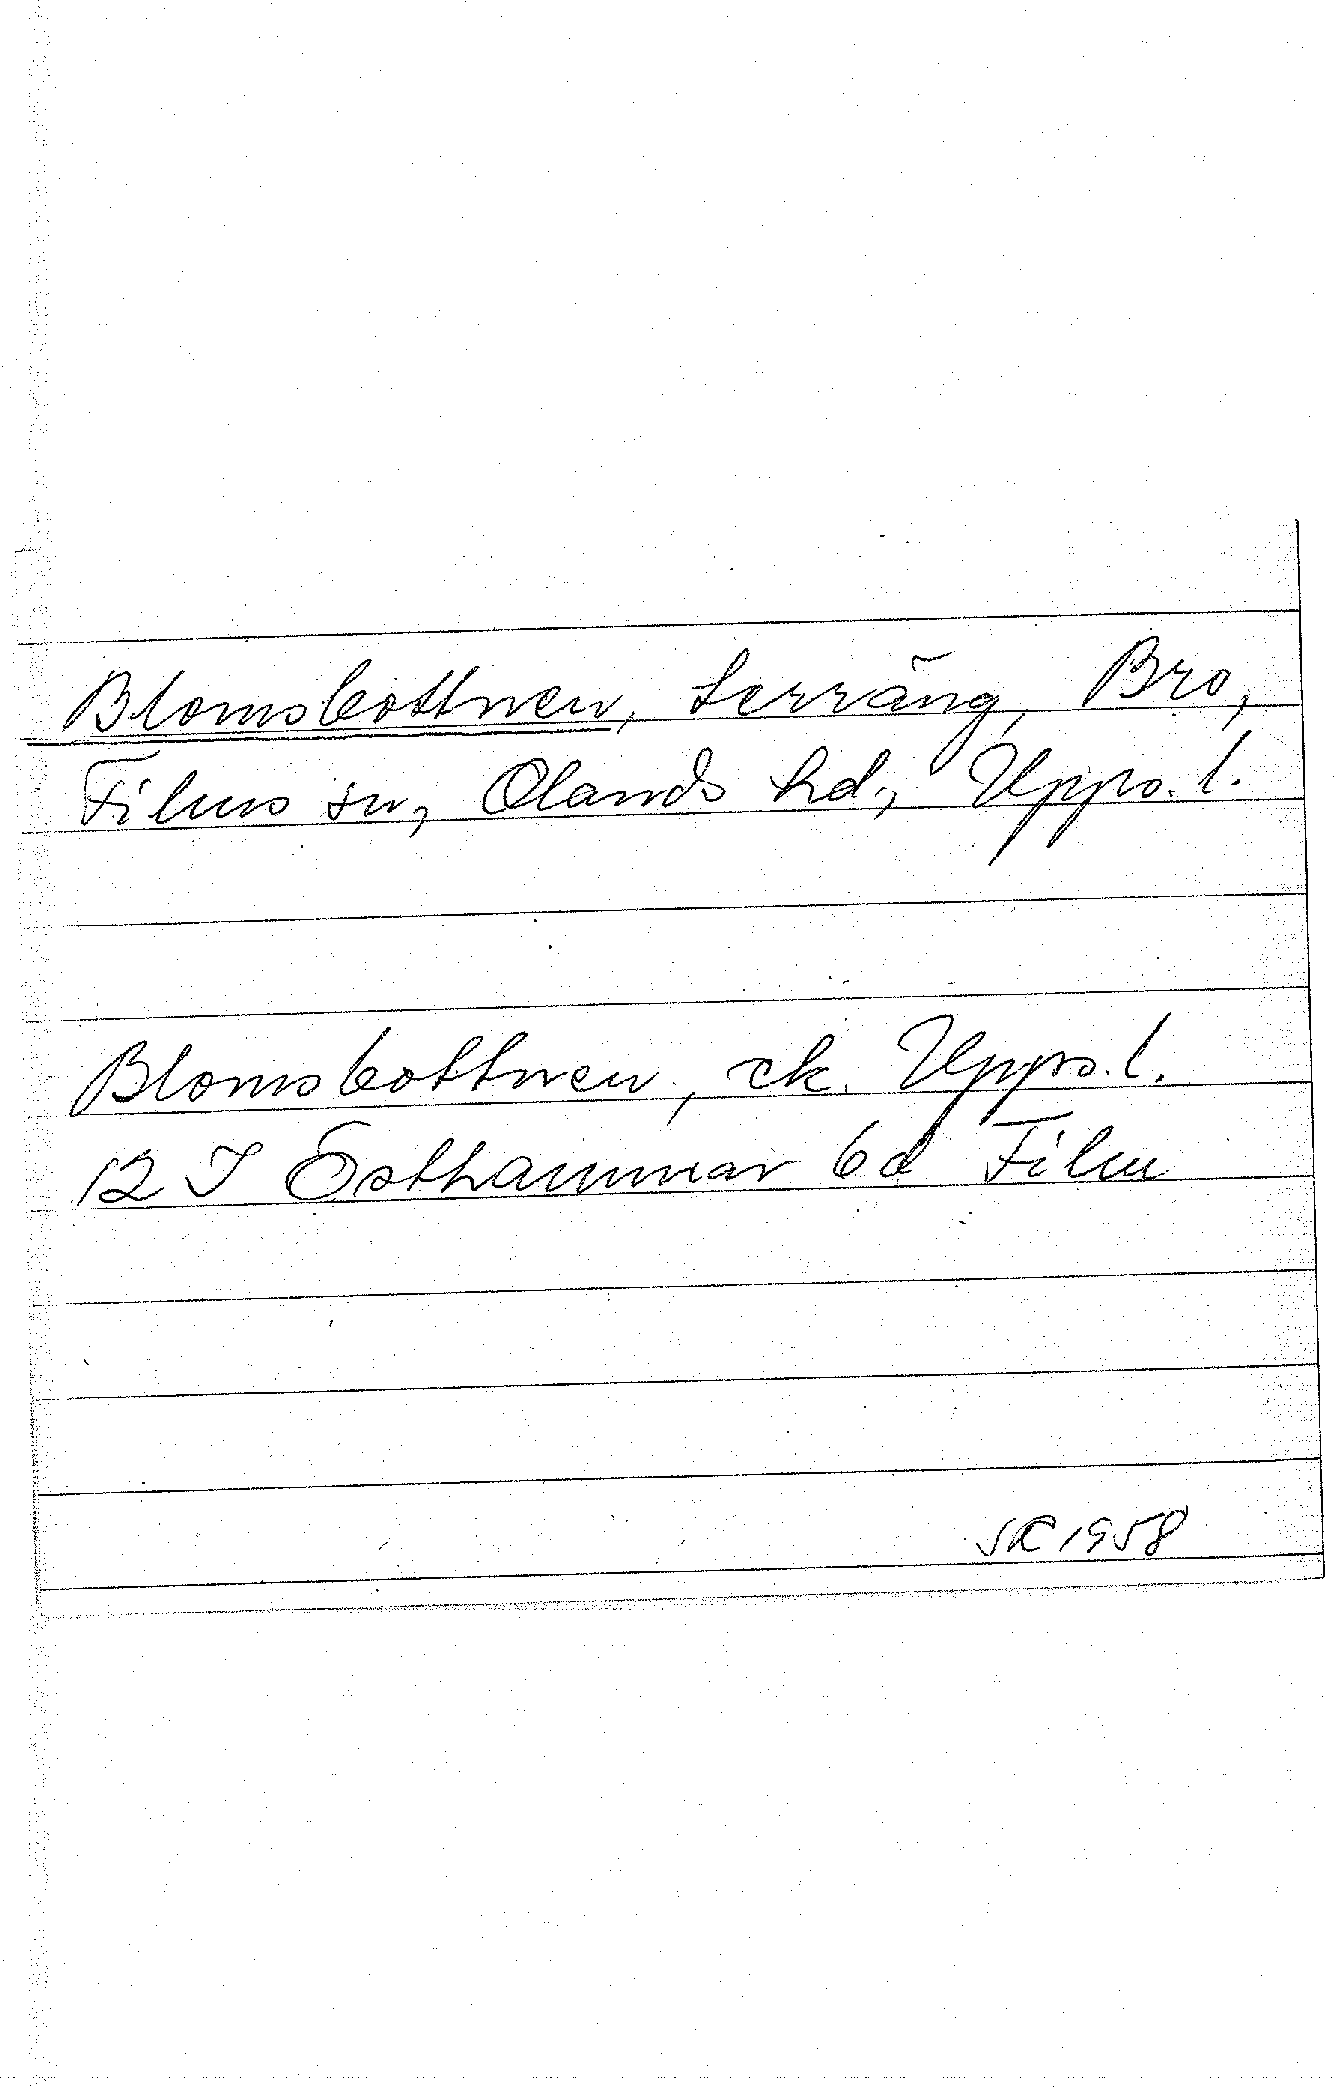 Blomsbottnen, terräng, Bro,
Films sn, Olands hd., Upps. l.
Blomsbottnen, ek. Upps. l.
12 I Östhammar 6d Film
SR 1958